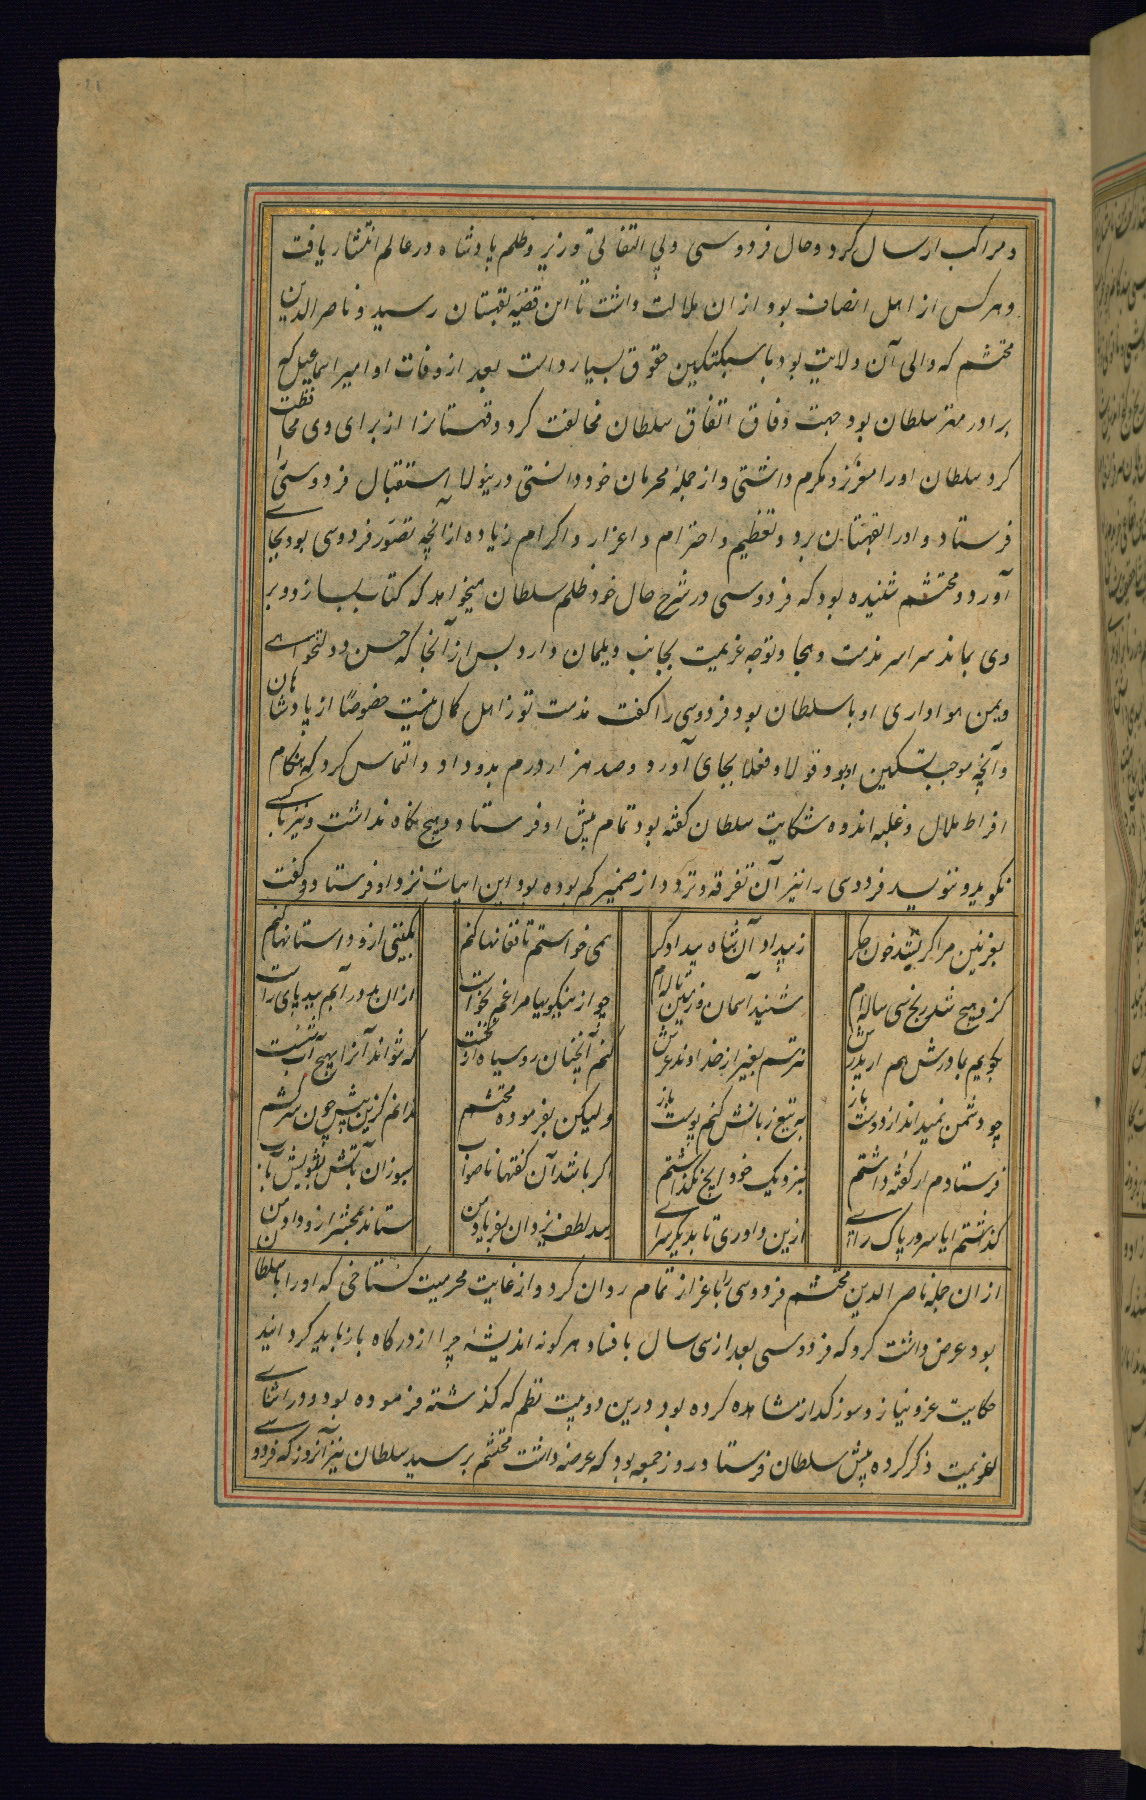 و مراکب ارسال کرد و حال فردوسی و بی التفاتی وزیر و ظلم پادشاه در عالم انتشار یافت
و هرکس از اهل انصاف بود از ان ملالت داشت تا این قضیه بقهستان رسید و ناصر الدین
محتشم که والی آن ولایت بود با سبکتکین حقوق بسیار داشت بعد از وفات او امیر اسماعیل که
برادر مهتر سلطان بود جهت وفاق اتفاق سلطان مخالفت کرد و قهستانرا از برای وی محافظت
کرد سلطان او را معزز و مکرم داشتی و از جمله محرمان خود دانستی درینولا استقبال فردوسی را
فرستاد و او را بقهستان برد و تعظیم و احترام و اعزاز و اکرام زیاده از آنچه تصور فردوسی بود بجای
آورد و محتشم شنیده بود که فردوسی در شرح حال خود و ظلم سلطان میخواهد که کتاب بسازد و بر
وی بماند سراسر مذمت و هجا و توجه عزیمت بجانب دیلمان دارد بس از آنجا که حسن دولتخواهی
و یمن هواداری او با سلطان بود فردوسی را کفت مذمت تو ز اهل کمال نیست خصوصا از پادشاهان
و آنچه موجب تسکین او بود قولا و فعلا بجای آورد و صد هزار درم بدو داد و التماس کرد که هنکام
افراط ملال و غلبه اندوه شکایت سلطان کفته بود تمام پیش او فرستاد و هیچ نکاه نداشت و نیز با کسی
نکوید و ننویسد فردوسی را نیز آن تفرقه و تردد از ضمیر کم بوده بود این ابیات نزد او فرستاد و کفت
بغزنین مرا کرچه شد خون جکر
ز بیداد آن شاه بیدادکر
همی خواستم تا فغانها کنم
بکیتی ازو داستانها کنم
کزو هیچ شد رنج سی ساله ام
شنید آسمان و زمین ناله ام
بکویم ز مادرش و هم از پدرش
نترسم بغیر از خداوند عرش
کنم آنچنان روسیاه
که نتواند آنرا بهیچ آب شست
چو دشمن نمیداند از دوست باز
به تیغ زبانش کنم پوست باز
ولیکن بفرموده محتشم
ندانم کزین پیش چون سرکشم
فرستادم ار کفته داشتم
بنزدیک خود هیچ نکذاشتم
اکر باشد آن کفتها ناصواب
بسوزان بآتش بشویش بآب
کذشتم ایا سرور پاک رای
ازین داوری تا بدیکر سرای
رسد لطف یزدان بفریاد من
ستاند بمحشر ازو داد من
از ان جمله ناصر الدین محتشم فردوسی را باعزاز تمام روان کرد و از غایت محرمیت کستاخی که او را با سلطان
بود عرض داشت کرد که فردوسی بعد از سی سال با فساد هرکونه اندیشه چرا از درکاه باز باید کردانید
حکایت عز و نیاز و سوز کداز مشاهده کرده بود درین دو بیت نظم که کذشته فرموده بود و در اثنای
عزیمت ذکر کرده پیش سلطان فرستاد روز جمعه بود که عرضه داشت محتشم برسید سلطان نیز آنروز که فردوسی